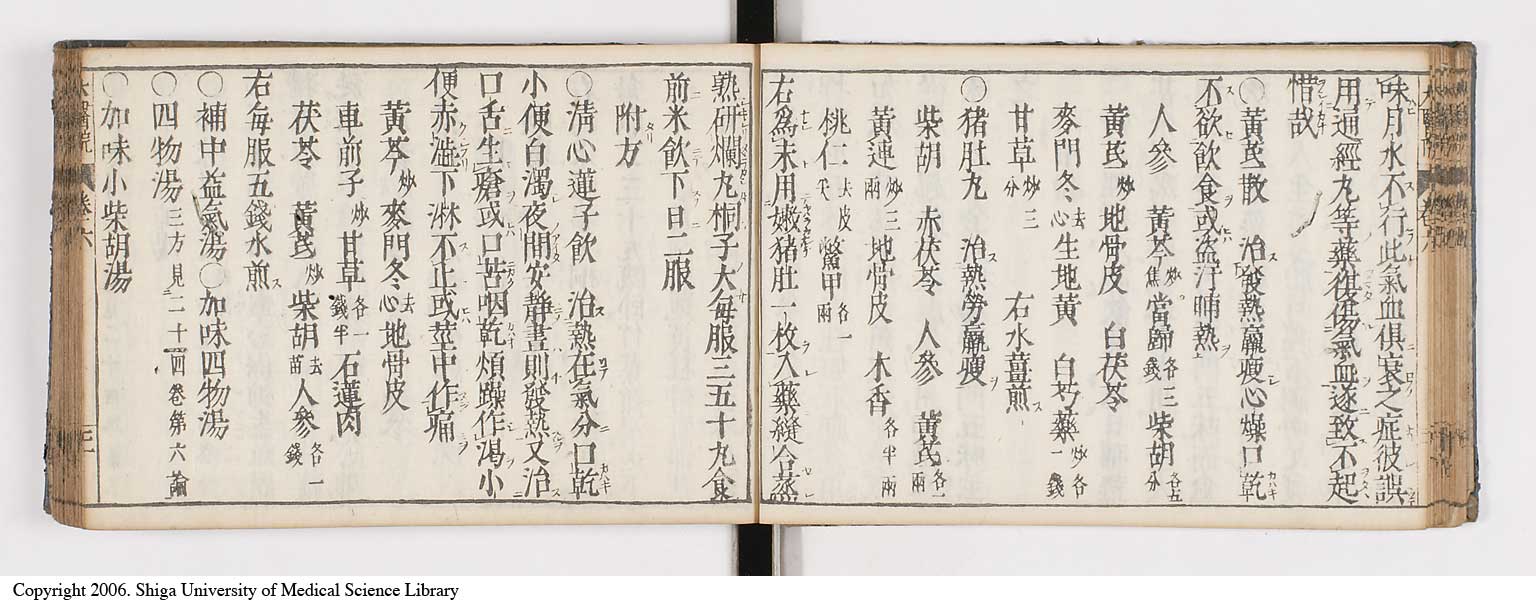 味月水不行此氣血俱衰之症彼誤
用通經丸等藥復傷氣血遂致不起
惜哉
○黃芪散 治發熱羸瘦心燥口乾
不欲飲食或盜汗晡熱
人參 黃芩炒焦 當歸各三錢 柴胡各五分
黃芪炒 地骨皮 白茯苓
麥門冬去心 生地黃 白芍藥炒各一錢
甘草炒三分 右水薑煎
○猪肚丸 治熱勞羸瘦
柴胡 赤茯苓 人參 黃芪各一兩
黃連炒三兩 地骨皮 木香各半兩
桃仁去皮尖 鱉甲各一兩
右爲末用嫩猪肚一枚入藥縫合蒸
熟研爛丸桐子大每服三五十丸食
前米飲下日二服
附方
○淸心蓮子飲 治熱在氣分口乾
小便白濁夜間安靜晝則發熱又治
口舌生瘡或口苦咽乾煩躁作渴小
便赤澁下淋不止或莖中作痛
黃芩炒 麥門冬去心 地骨皮
車前子炒 甘草各一錢半 石蓮肉
茯苓 黃芪炒 柴胡去苗 人參各一錢
右每服五錢水煎
○補中益氣湯○加味四物湯
○四物湯三方見二十四卷第六論
○加味小柴胡湯
Copyright 2006. Shiga University of Medical Science Library